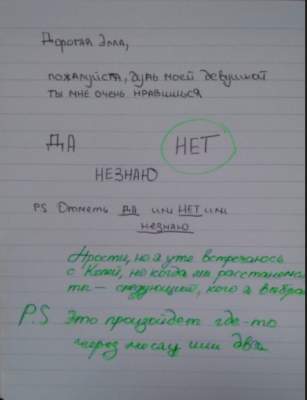 Дорогая Элла,
пожалуйста, будь моей девушкой
ты мне очень нравишься
ДА НЕТ
НЕЗНАЮ
PS Отметь ДА или НЕТ или
незнаю
Прости, но я уже встречаюсь
с Колей, но когда мы расстанемся
ты — следующий, кого я выбра
P.S Это произойдет где-то
через месяц или два.